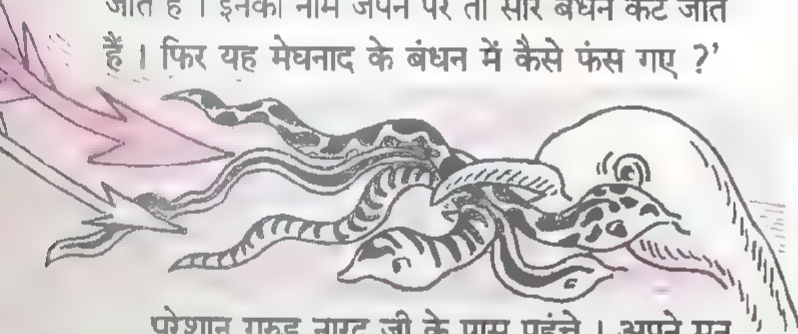 जाते हैं । इनका नाम जपने पर तो सारे बंधन कट जाते
हैं । फिर यह मेघनाद के बंधन में कैसे फंस गए ?’
परेशान गरुड़ नारद जी के पास पहुंचे । अपने मन